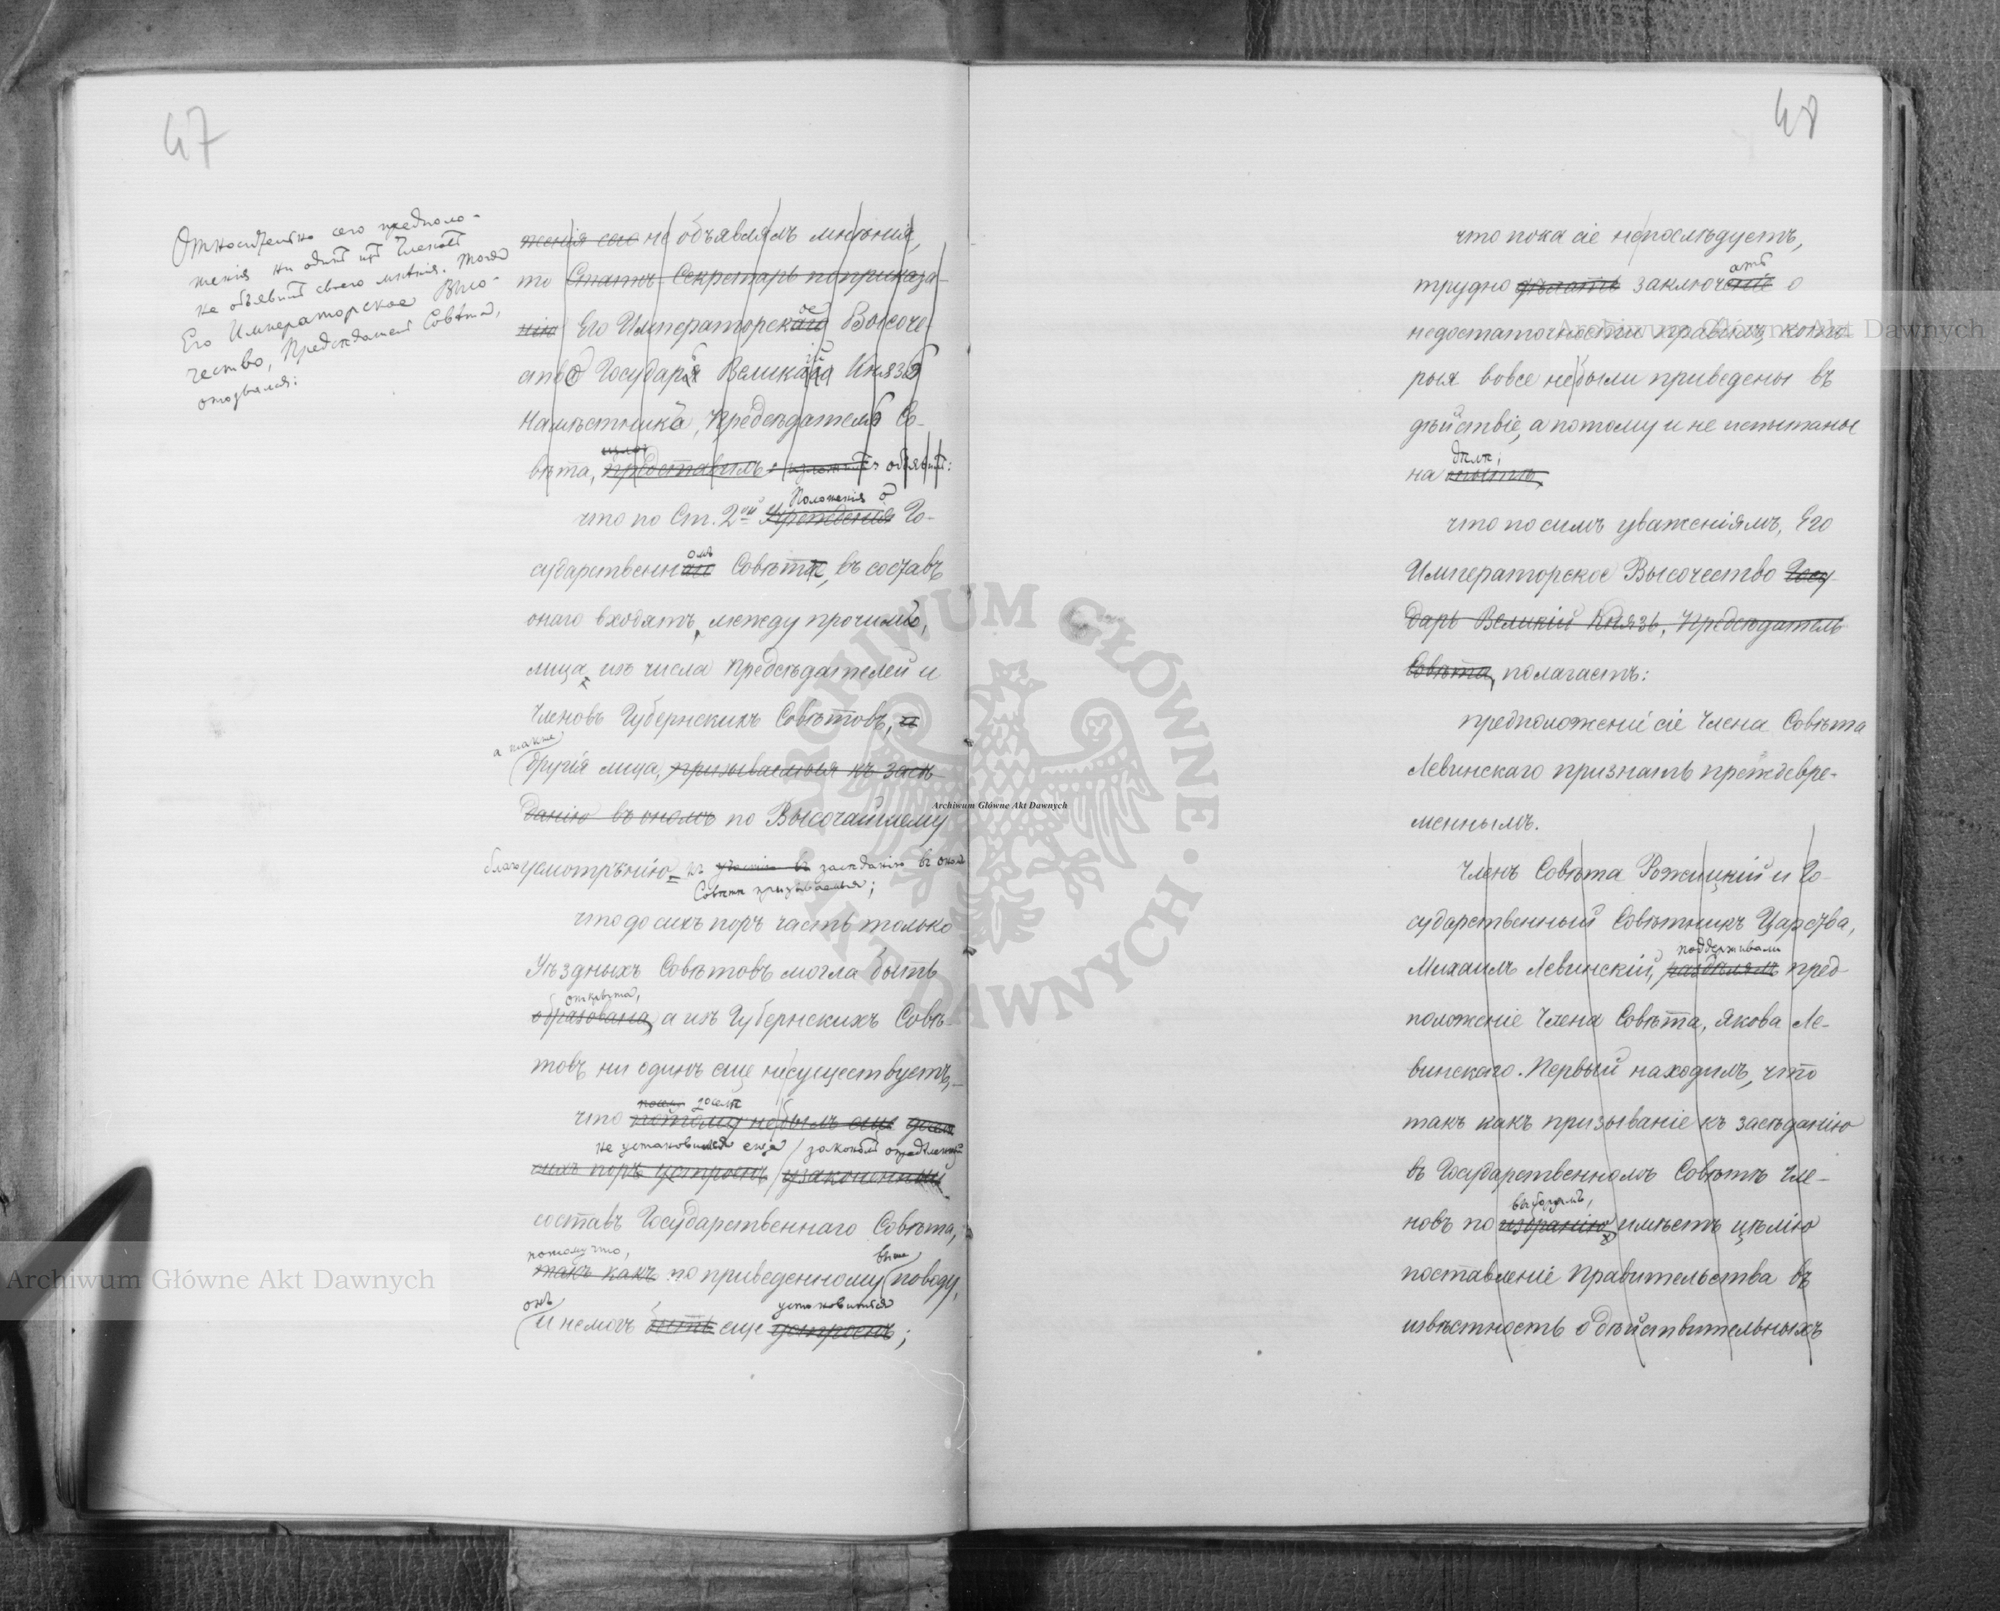 47
Относительно сего предполо-
женія ни одинъ изъ Членовъ
не объявилъ своего мнѣнія. Тогда
Его Императорское Высо-
чество, Предсѣдатель Совѣта,
отозвался:
женія сего не объявлялъ мнѣнія,
то Статсъ-Секретарь по приказа-
нію Его Императорскаго Высоче-
ства Государя Великаго Князя
Намѣстника, Предсѣдателя Со-
вѣта, представилъ объявить:
Положенія о
что по Ст. 2ой Учрежденія Го-
омъ
сударственнаго Совѣта, въ составъ
онаго входятъ, между прочимъ,
лица, изъ числа Предсѣдателей и
Членовъ Губернскихъ Совѣтовъ, и
а также
другія лица, призываемыя къ засѣ-
данію въ ономъ по Высочайшему
благоусмотрѣнію къ участію въ засѣданію въ ономъ
Совѣтѣ призываемыя;
что до сихъ поръ часть только
Уѣздныхъ Совѣтовъ могла быть
открыта,
образована, а изъ Губернскихъ Совѣ-
товъ ни одинъ еще не существуетъ,
доселѣ
что потому не былъ еще до
не установился еще закономъ опредѣленный
сихъ поръ устроенъ узаконенный
составъ Государственнаго Совѣта,
потому что, выше
такъ какъ по приведенному поводу,
онъ установиться
и не могъ быть еще устроенъ;
48
что пока сіе не послѣдуетъ,
ать
трудно дѣлать заключеніе о
недостаточности правилъ, кото-
рыя вовсе не были приведены въ
дѣйствіе, а потому и не испытаны
дѣлѣ;
на опытѣ,
что по симъ уваженіямъ, Его
Императорское Высочество Госу-
дарь Великій Князь, Предсѣдатель
Совѣта, полагаетъ:
предположеніе сіе Члена Совѣта
Левинскаго признать преждевре-
меннымъ.
Членъ Совѣта Рожицкій и Го-
сударственный Совѣтникъ Царства,
поддерживали
Михаилъ Левинскій, раздѣлялъ пред-
положеніе Члена Совѣта, Якова Ле-
винскаго. Первый находилъ, что
такъ какъ призываніе къ засѣданію
въ Государственномъ Совѣтѣ Чле-
выборамъ,
новъ по избранію, имѣетъ цѣлію
поставленіе Правительства въ
извѣстность о дѣйствительныхъ
Archiwum Główne Akt Dawnych
Archiwum Główne Akt Dawnych
Archiwum Główne Akt Dawnych
ARCHIWUM GŁÓWNE AKT DAWNYCH